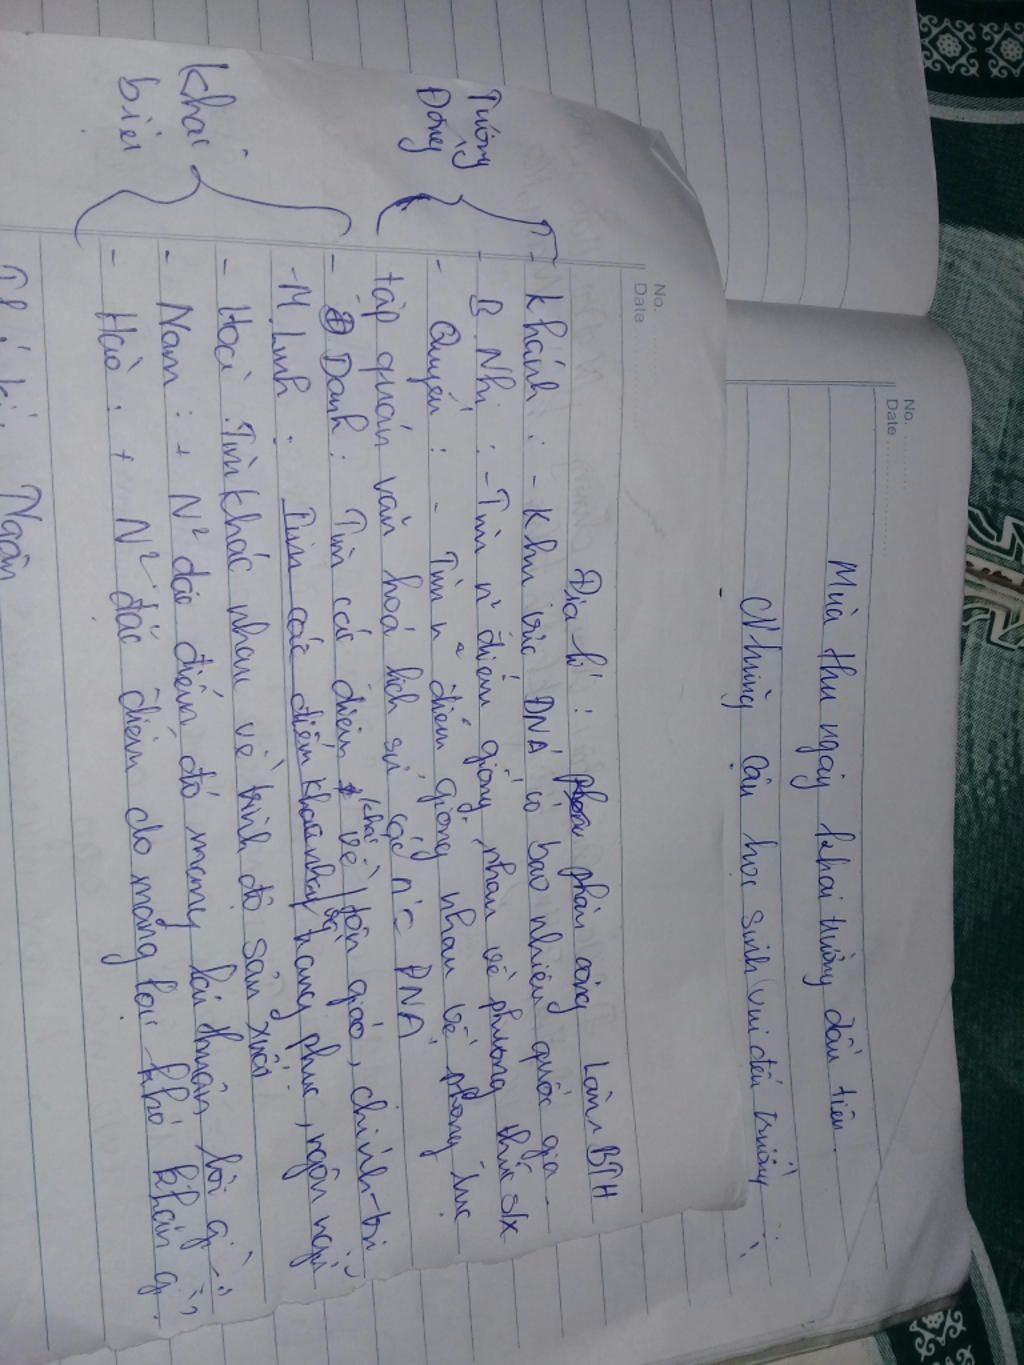 No.
Date
Mùa thu ngày khai trường đầu tiên.
Những cậu học sinh vui đến trường
No.
Date
Địa lí: phân công Làm BTH
Tương Đồng
- Khánh: - Khu vực ĐNA có bao nhiêu quốc gia.
- B Nhi: - Tìm n~ điểm giống nhau về phương thức s/x
- Quyên: - Tìm n~ điểm giống nhau về phong tục
tập quán văn hoá lịch sử các n~ ĐNA
Khác biệt
- Danh: Tìm các điểm khác về tôn giáo, chính trị
- M Linh: Tìm các điểm khác nhau trang phục, ngôn ngữ
- Hoài: Tìm khác nhau về trình độ sản xuất
- Nam: + N² đặc điểm đó mang lại thuận lợi gì
- Hào: + N² đặc điểm do mang lại khó khăn gì
Ngân